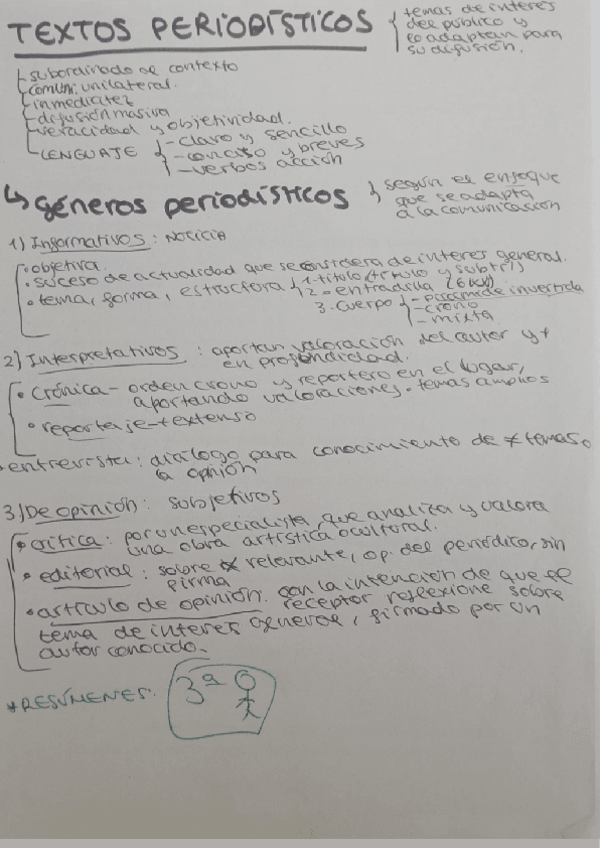 TEXTOS PERIODÍSTICOS { temas de interés
del público y
lo adaptan para
su difusión.
subordinado al contexto
comuni. unilateral.
inmediatez
difusión masiva
veracidad y objetividad.
LENGUAJE { - claro y sencillo
- conciso y breves
- verbos acción
↳ géneros periodísticos } según el enfoque
que se adapta
a la comunicación
1) Informativos: NOTICIA
• objetiva.
• suceso de actualidad que se considera de interés general.
• tema, forma, estructura { 1. título (título y subtít.)
2 = entradilla (6W)
3. cuerpo { - pirámide invertida
- crono
- mixta
2) Interpretativos: aportan valoración del autor y +
en profundidad.
• crónica - orden crono y reportero en el lugar,
aportando valoraciones • temas amplios
• reportaje - + extenso
• entrevista: diálogo para conocimiento de ≠ temas o
la opinión
3) De opinión: subjetivos
• crítica: por un especialista, que analiza y valora
una obra artística o cultural.
• editorial: sobre relevante, op. del periódico, sin
firma
• artículo de opinión. con la intención de que el
receptor reflexione sobre
tema de interés general, firmado por un
autor conocido.
* RESÚMENES: 3ª